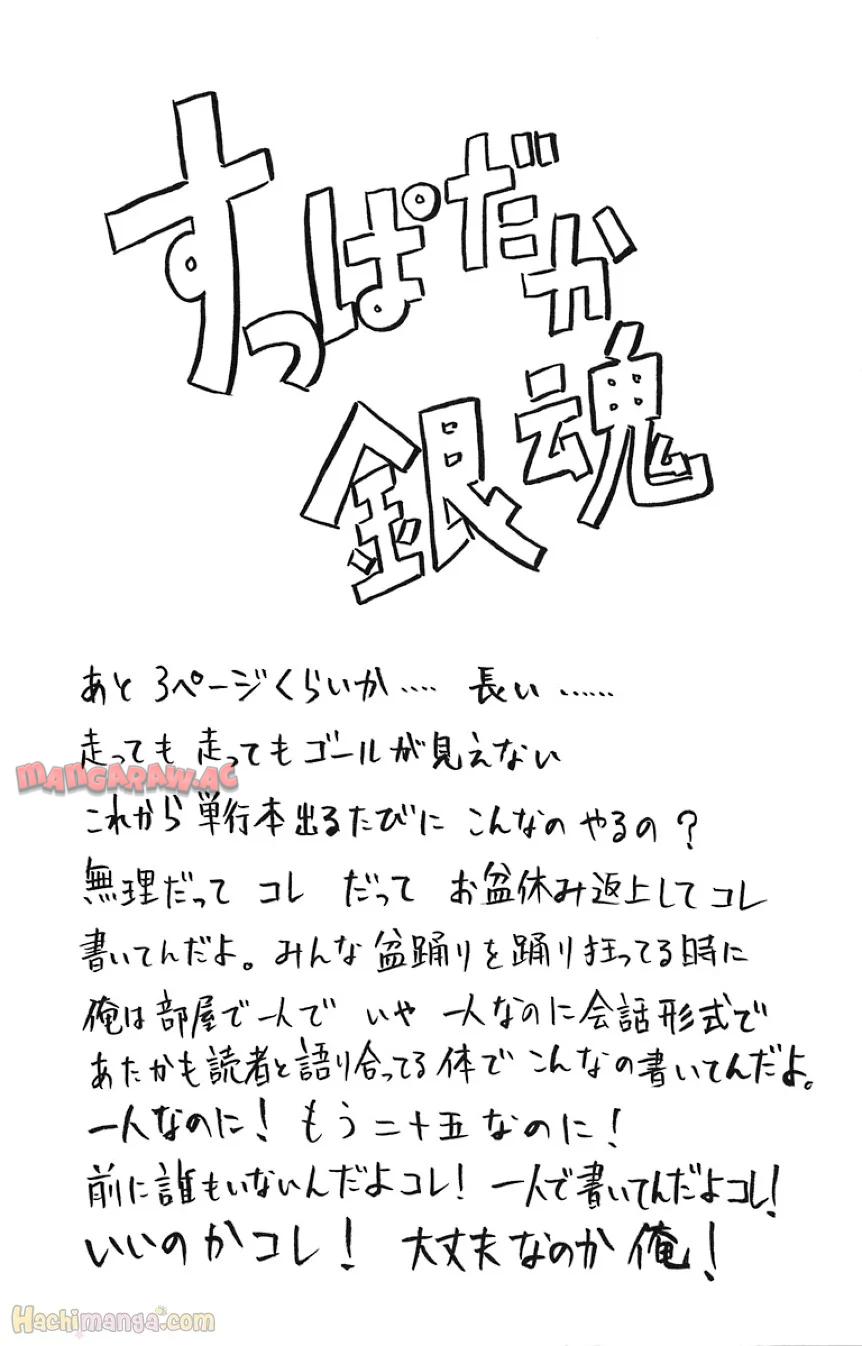 すっぱだか
銀魂
あと 3ページくらいか‥‥ 長い ‥‥‥
走っても 走ってもゴールが見えない
MANGARAW.AC
これから単行本出るたびに こんなの やるの?
無理だって コレ だって お盆休み返上してコレ
書いてんだよ。みんな 盆踊りを踊り狂ってる時に
俺は部屋で一人で いや 一人なのに会話形式で
あたかも読者と語り合ってる体で こんなの書いてんだよ。
一人なのに! もう二十五なのに!
前に誰もいないんだよコレ! 一人で書いてんだよコレ!
いいのかコレ! 大丈夫なのか 俺!
Hachimanga.com